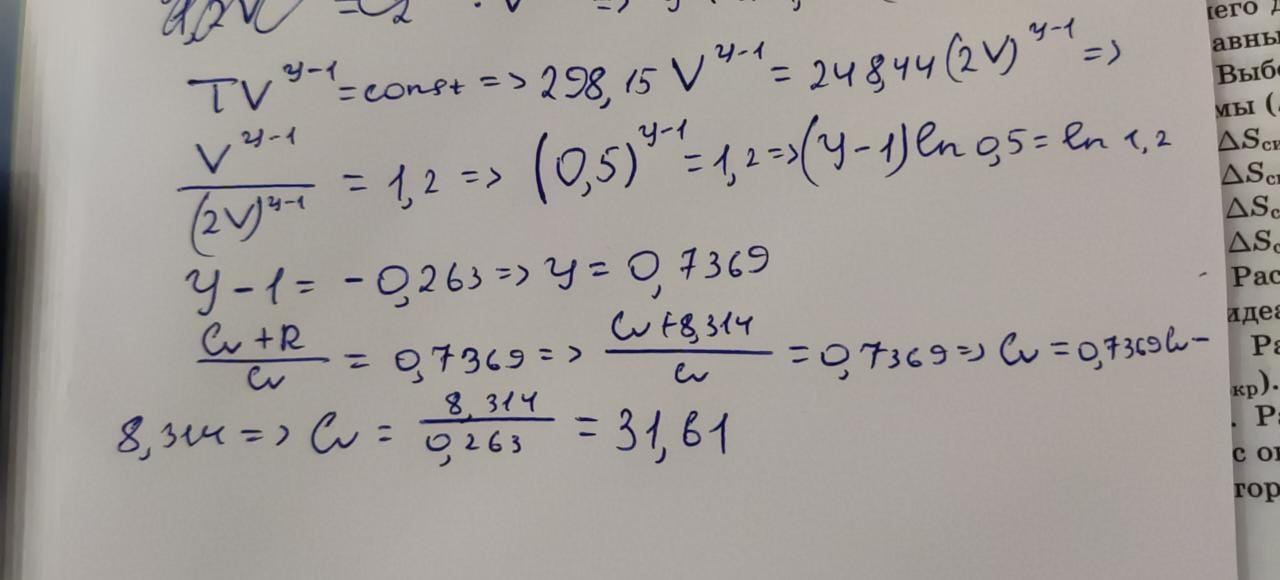 TV^(γ-1) = const => 298,15 V^(γ-1) = 248,44 (2V)^(γ-1) =>
V^(γ-1) / (2V)^(γ-1) = 1,2 => (0,5)^(γ-1) = 1,2 => (γ-1) ln 0,5 = ln 1,2
γ-1 = -0,263 => γ = 0,7369
(Cv + R) / Cv = 0,7369 => (Cv + 8,314) / Cv = 0,7369 => Cv = 0,7369 Cv -
8,314 => Cv = 8,314 / 0,263 = 31,61
Выбе
мы (
ΔS
ΔS
ΔS
ΔS
Рас
идеа
Ра
кр).
. Ра
с
гор